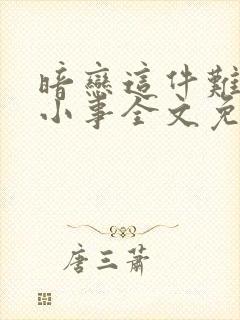 暗戀這件難
小事全文免
唐三蕭